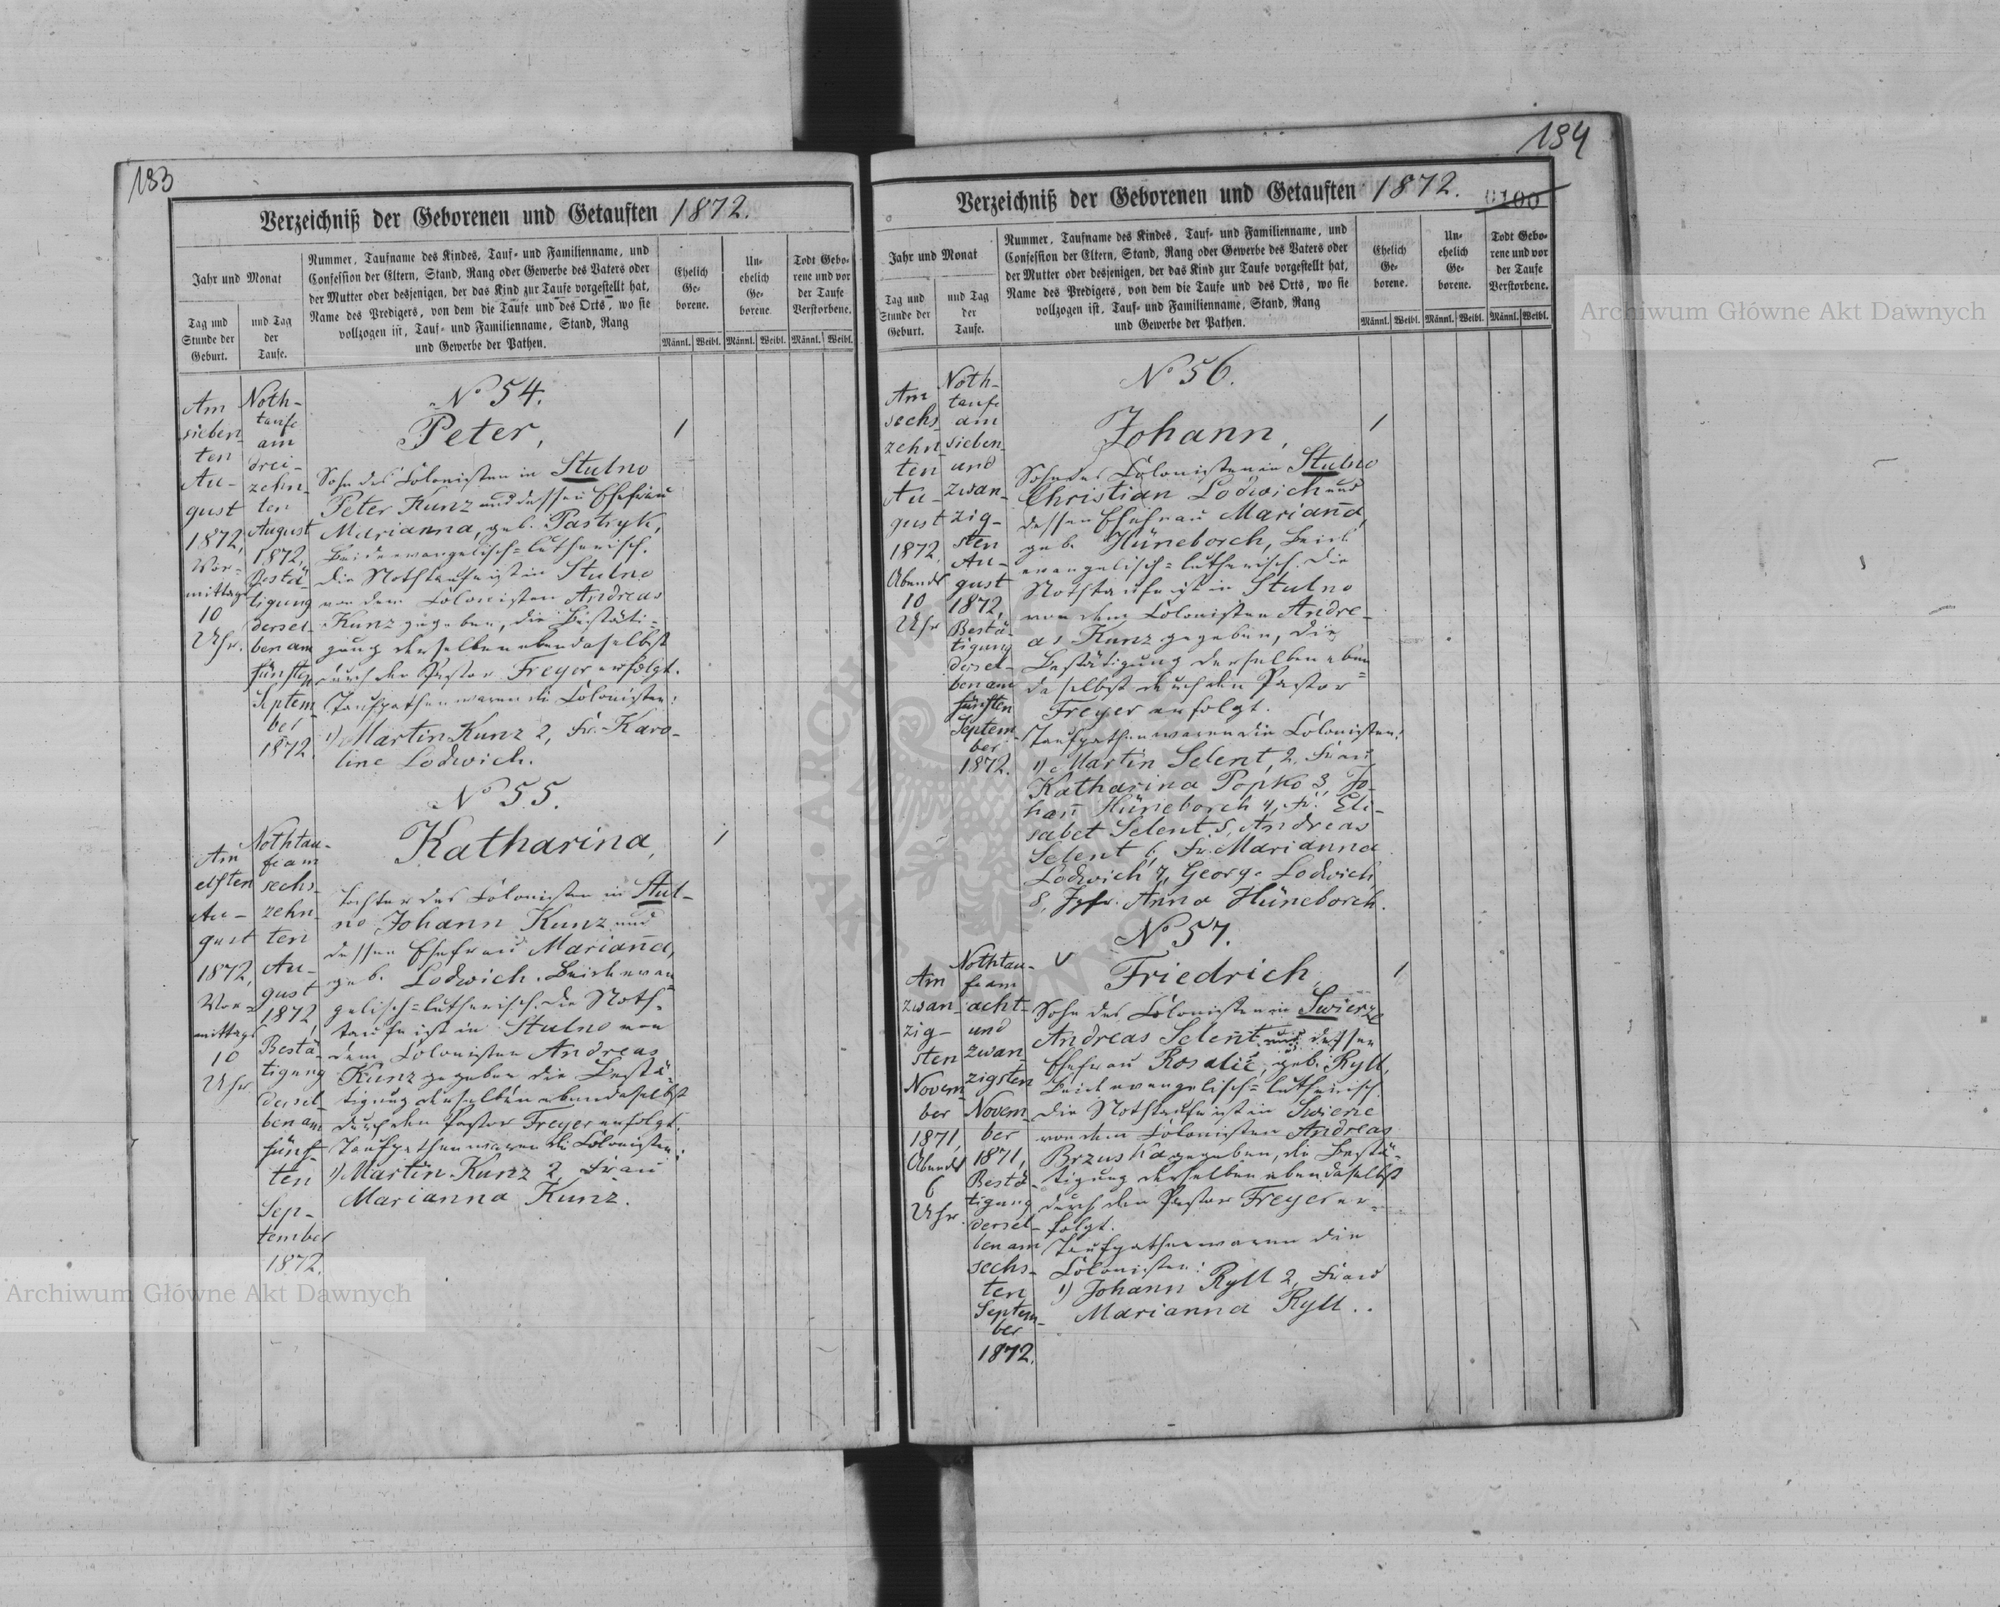 183
Verzeichniß der Geborenen und Getauften 1872.
Jahr und Monat
Tag und
Stunde der
Geburt.
und Tag
der
Taufe.
Nummer, Taufname des Kindes, Tauf- und Familienname, und
Confession der Eltern, Stand, Rang oder Gewerbe des Vaters oder
der Mutter oder desjenigen, der das Kind zur Taufe vorgestellt hat,
Name des Predigers, von dem die Taufe und des Orts, wo sie
vollzogen ist, Tauf- und Familienname, Stand, Rang
und Gewerbe der Pathen.
Ehelich
Ge-
borene.
Un-
ehelich
Ge-
borene
Todt Gebo-
rene und vor
der Taufe
Verstorbene.
Männl. Weibl. Männl. Weibl. Männl. Weibl.
Am
sieben-
ten
Au-
gust
1872,
Vor-
mittags
10
Uhr.
Noth-
taufe
am
drei-
zehn-
ten
August
1872,
Bestä-
tigung
dersel-
ben am
fünften
Septem-
ber
1872.
No 54.
Peter,
1
Sohn des Colonisten in Stulno
Peter Kunz und dessen Ehefrau
Marianna, geb. Pastryk,
Beide evangelisch=lutherisch.
Die Nothtaufe ist in Stulno
von dem Colonisten Andreas
Kunz gegeben, die Bestäti-
gung derselben ebendaselbst
durch den Pastor Freyer erfolgt.
Taufpathen waren die Colonisten:
1) Martin Kunz 2, Fr. Karo-
line Lodwich.
No 55.
Am
elften
Au-
gust
1872,
Vor-
mittags
10
Uhr
Nothtau-
fe am
sechs-
zehn-
ten
Au-
gust
1872,
Bestä-
tigung
dersel-
ben am
fünf-
ten
Sep-
tember
1872.
Katharina,
1
Tochter des Colonisten in Stul-
no Johann Kunz und
dessen Ehefrau Marianna,
geb. Lodwich. Beide evan-
gelisch=lutherisch. Die Noth-
taufe ist in Stulno von
dem Colonisten Andreas
Kunz gegeben die Bestä-
tigung derselben ebendaselbst
durch den Pastor Freyer erfolgt.
Taufpathen waren die Colonisten:
1) Martin Kunz 2, Frau
Marianna Kunz.
184
Verzeichniß der Geborenen und Getauften 1872.
0100
Jahr und Monat
Tag und
Stunde der
Geburt.
und Tag
der
Taufe.
Nummer, Taufname des Kindes, Tauf- und Familienname, und
Confession der Eltern, Stand, Rang oder Gewerbe des Vaters oder
der Mutter oder desjenigen, der das Kind zur Taufe vorgestellt hat,
Name des Predigers, von dem die Taufe und des Orts, wo sie
vollzogen ist, Tauf- und Familienname, Stand, Rang
und Gewerbe der Pathen.
Ehelich
Ge-
borene.
Un-
ehelich
Ge-
borene.
Todt Gebo-
rene und vor
der Taufe
Verstorbene.
Männl. Weibl. Männl. Weibl. Männl. Weibl.
Am
sechs-
zehn-
ten
Au-
gust
1872
Abends
10
Uhr
Noth-
taufe
am
sieben
und
zwan-
zig-
sten
Au-
gust
1872,
Bestä-
tigung
dersel-
ben am
fünften
Septem-
ber
1872.
No 56.
Johann,
1
Sohn des Colonisten in Stulno
Christian Lodwich und
dessen Ehefrau Marianna,
geb. Hüneborch, Beide
evangelisch=lutherisch. Die
Nothtaufe ist in Stulno
von dem Colonisten Andre-
as Kunz gegeben, die
Bestätigung derselben eben-
daselbst durch den Pastor
Freyer erfolgt.
Taufpathen waren die Colonisten:
1) Martin Selent, 2. Frau
Katharina Popko 3, Jo-
hann Hüneborch 4, Fr. Eli-
sabet Selent, 5, Andreas
Selent 6, Fr. Marianna
Lodwich 7, George Lodwich,
8, Jgfr. Anna Hüneborch.
No 57.
Am
zwan-
zig-
sten
Novem-
ber
1871,
Abends
6
Uhr.
Nothtau-
fe am
acht-
und
zwan-
zigsten
Novem-
ber
1871,
Bestä-
tigung
dersel-
ben am
sechs-
ten
Septem-
ber
1872.
Friedrich,
1
Sohn des Colonisten in Swierze
Andreas Selent und dessen
Ehefrau Rosalie, geb. Ryll,
Beide evangelisch=lutherisch.
Die Nothtaufe ist in Swierze
von dem Colonisten Andreas
Brzuska gegeben, die Bestä-
tigung derselben ebendaselbst
durch den Pastor Freyer er-
folgt.
Taufpathen waren die
Colonisten:
1) Johann Ryll 2, Frau
Marianna Ryll.
Archiwum Główne Akt Dawnych
Archiwum Główne Akt Dawnych